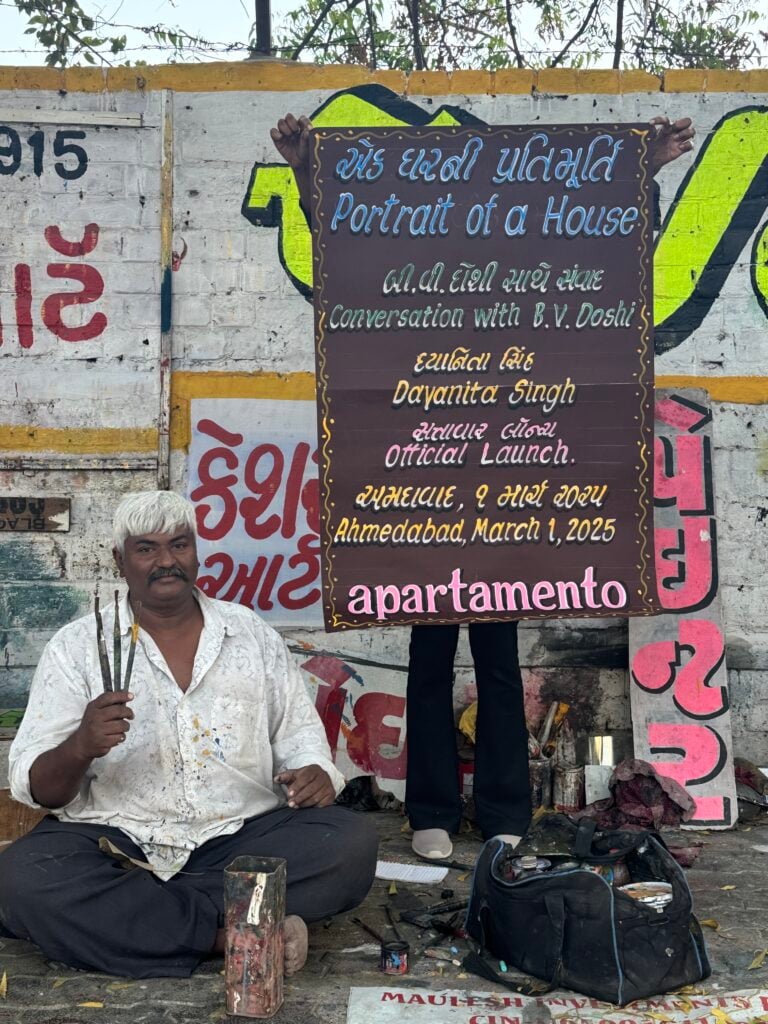 915
એક ઘરની પ્રતિમૂર્તિ
Portrait of a House
બી.વી.દોશી સાથે સંવાદ
Conversation with B.V. Doshi
દયાનિતા સિંહ
Dayanita Singh
સત્તાવાર લૉન્ચ
Official Launch.
અમદાવાદ, ૧ માર્ચ ૨૦૨૫
Ahmedabad, March 1, 2025
apartamento
આર્ટ
BLAC
MAULESH INVESTMENTS
CIN